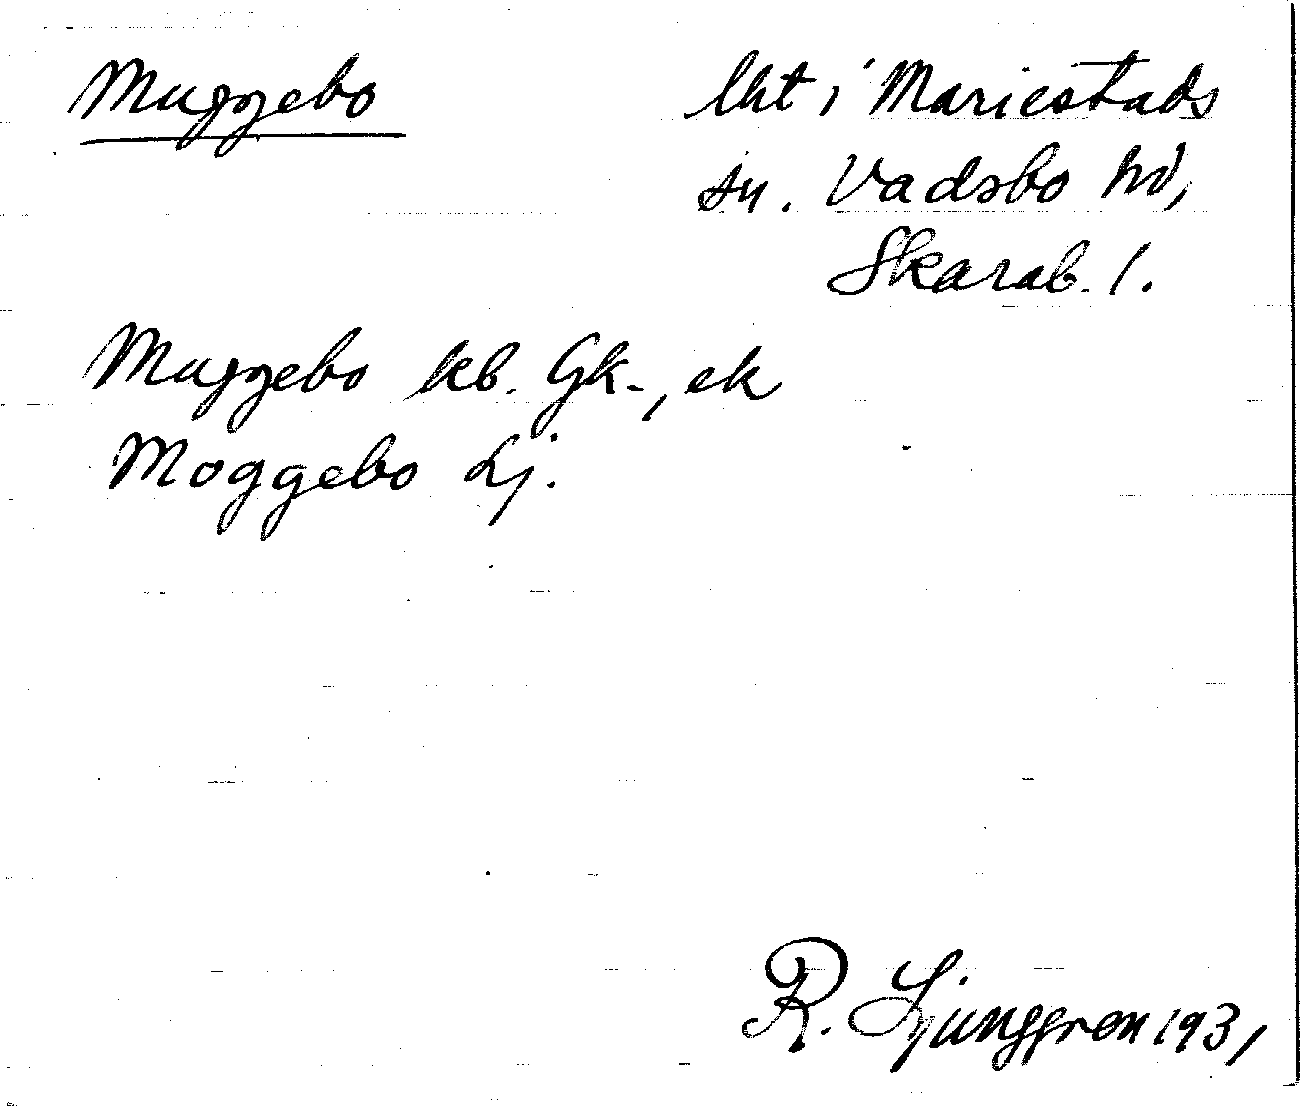 Muggebo
lht i Mariestads
sn. Vadsbo hd,
Skarab. l.
Muggebo kb. Gk-, ek
Moggebo Lj.
R. Ljunggren 1931